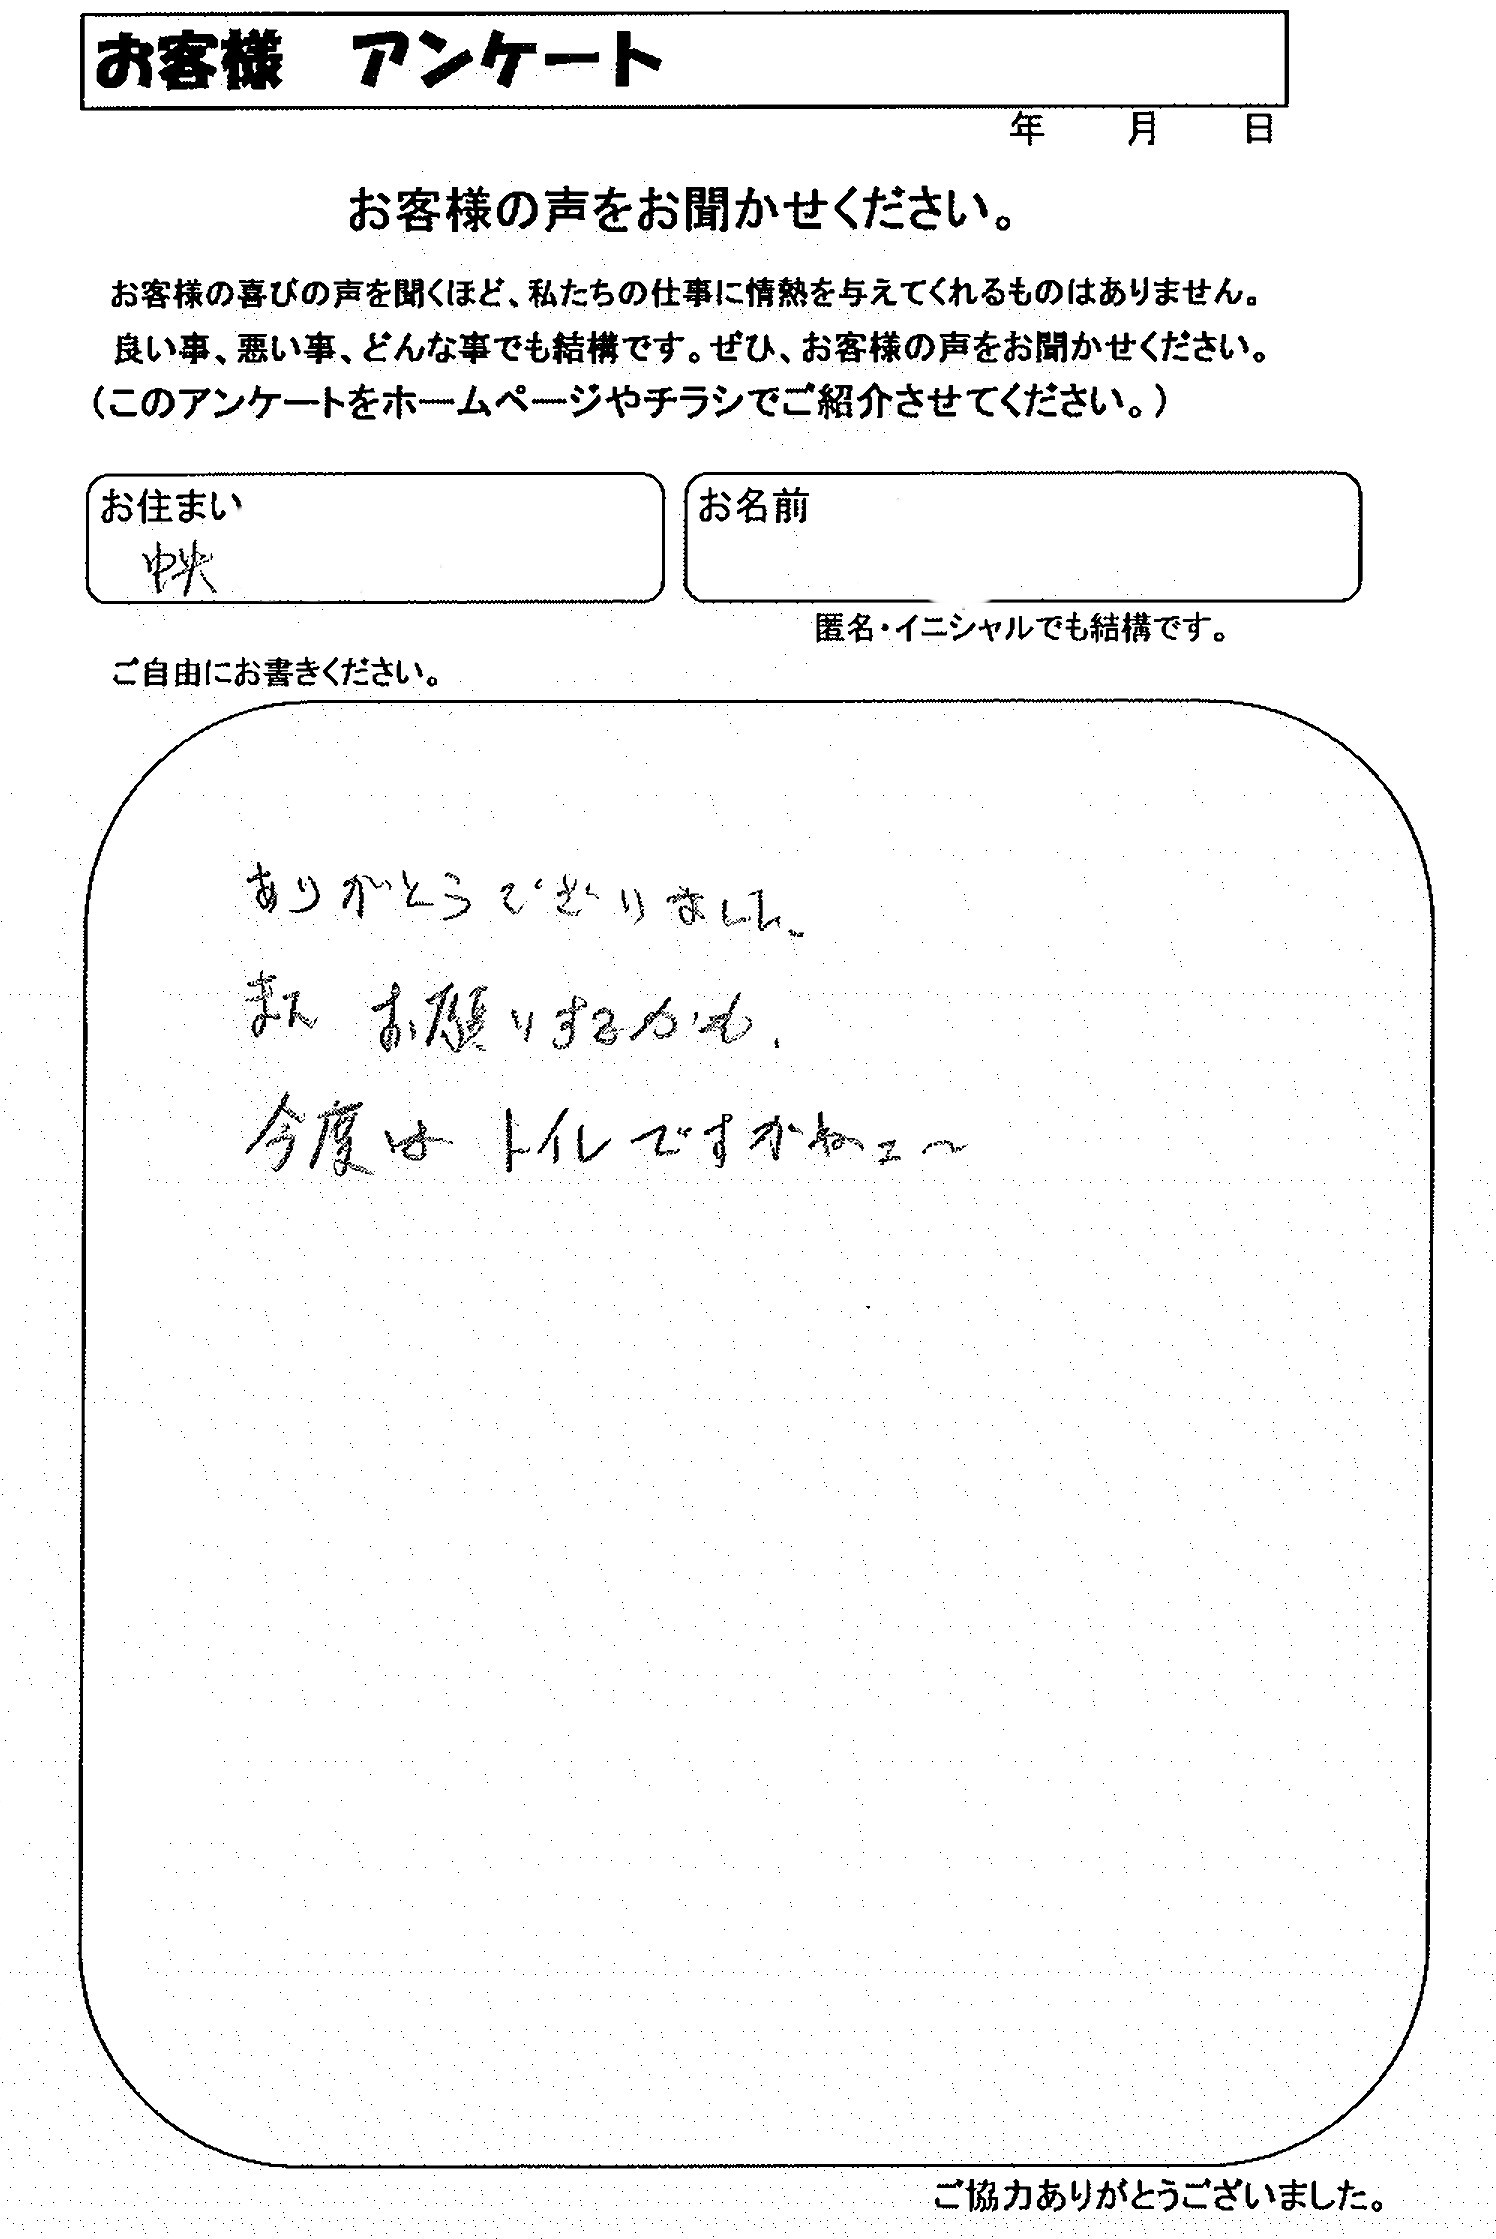 お客様　アンケート
年　月　日
お客様の声をお聞かせください。
お客様の喜びの声を聞くほど、私たちの仕事に情熱を与えてくれるものはありません。
良い事、悪い事、どんな事でも結構です。ぜひ、お客様の声をお聞かせください。
（このアンケートをホームページやチラシでご紹介させてください。）
お住まい
中央
お名前
匿名・イニシャルでも結構です。
ご自由にお書きください。
ありがとうございました。
また お願いするかも.
今度は トイレですかねェ〜
ご協力ありがとうございました。